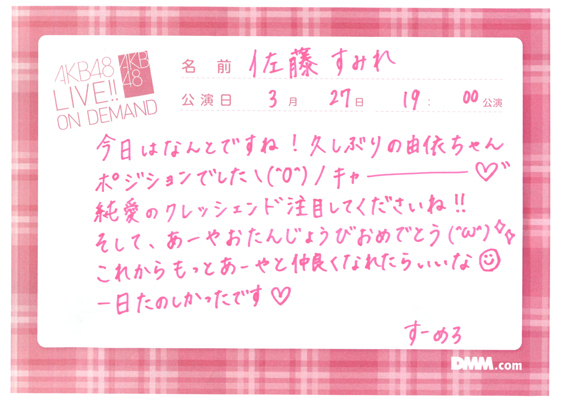 AKB48
LIVE!!
ON DEMAND
AKB
48
名 前 佐藤 すみれ
公演日 3月 27日 19: 00公演
今日はなんとですね!久しぶりの由依ちゃん
ポジションでした\(^0^)/キャー♡"
純愛のクレッシェンド注目してくださいね!!
そして、あーやおたんじょうびおめでとう(^ω^)✧✧
これからもっとあーやと仲良くなれたらいいな☺
一日たのしかったです♡
すーめろ
DMM.com